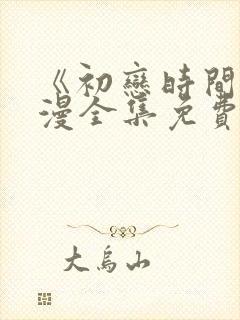 《初戀時間
漫全集免費
大烏山